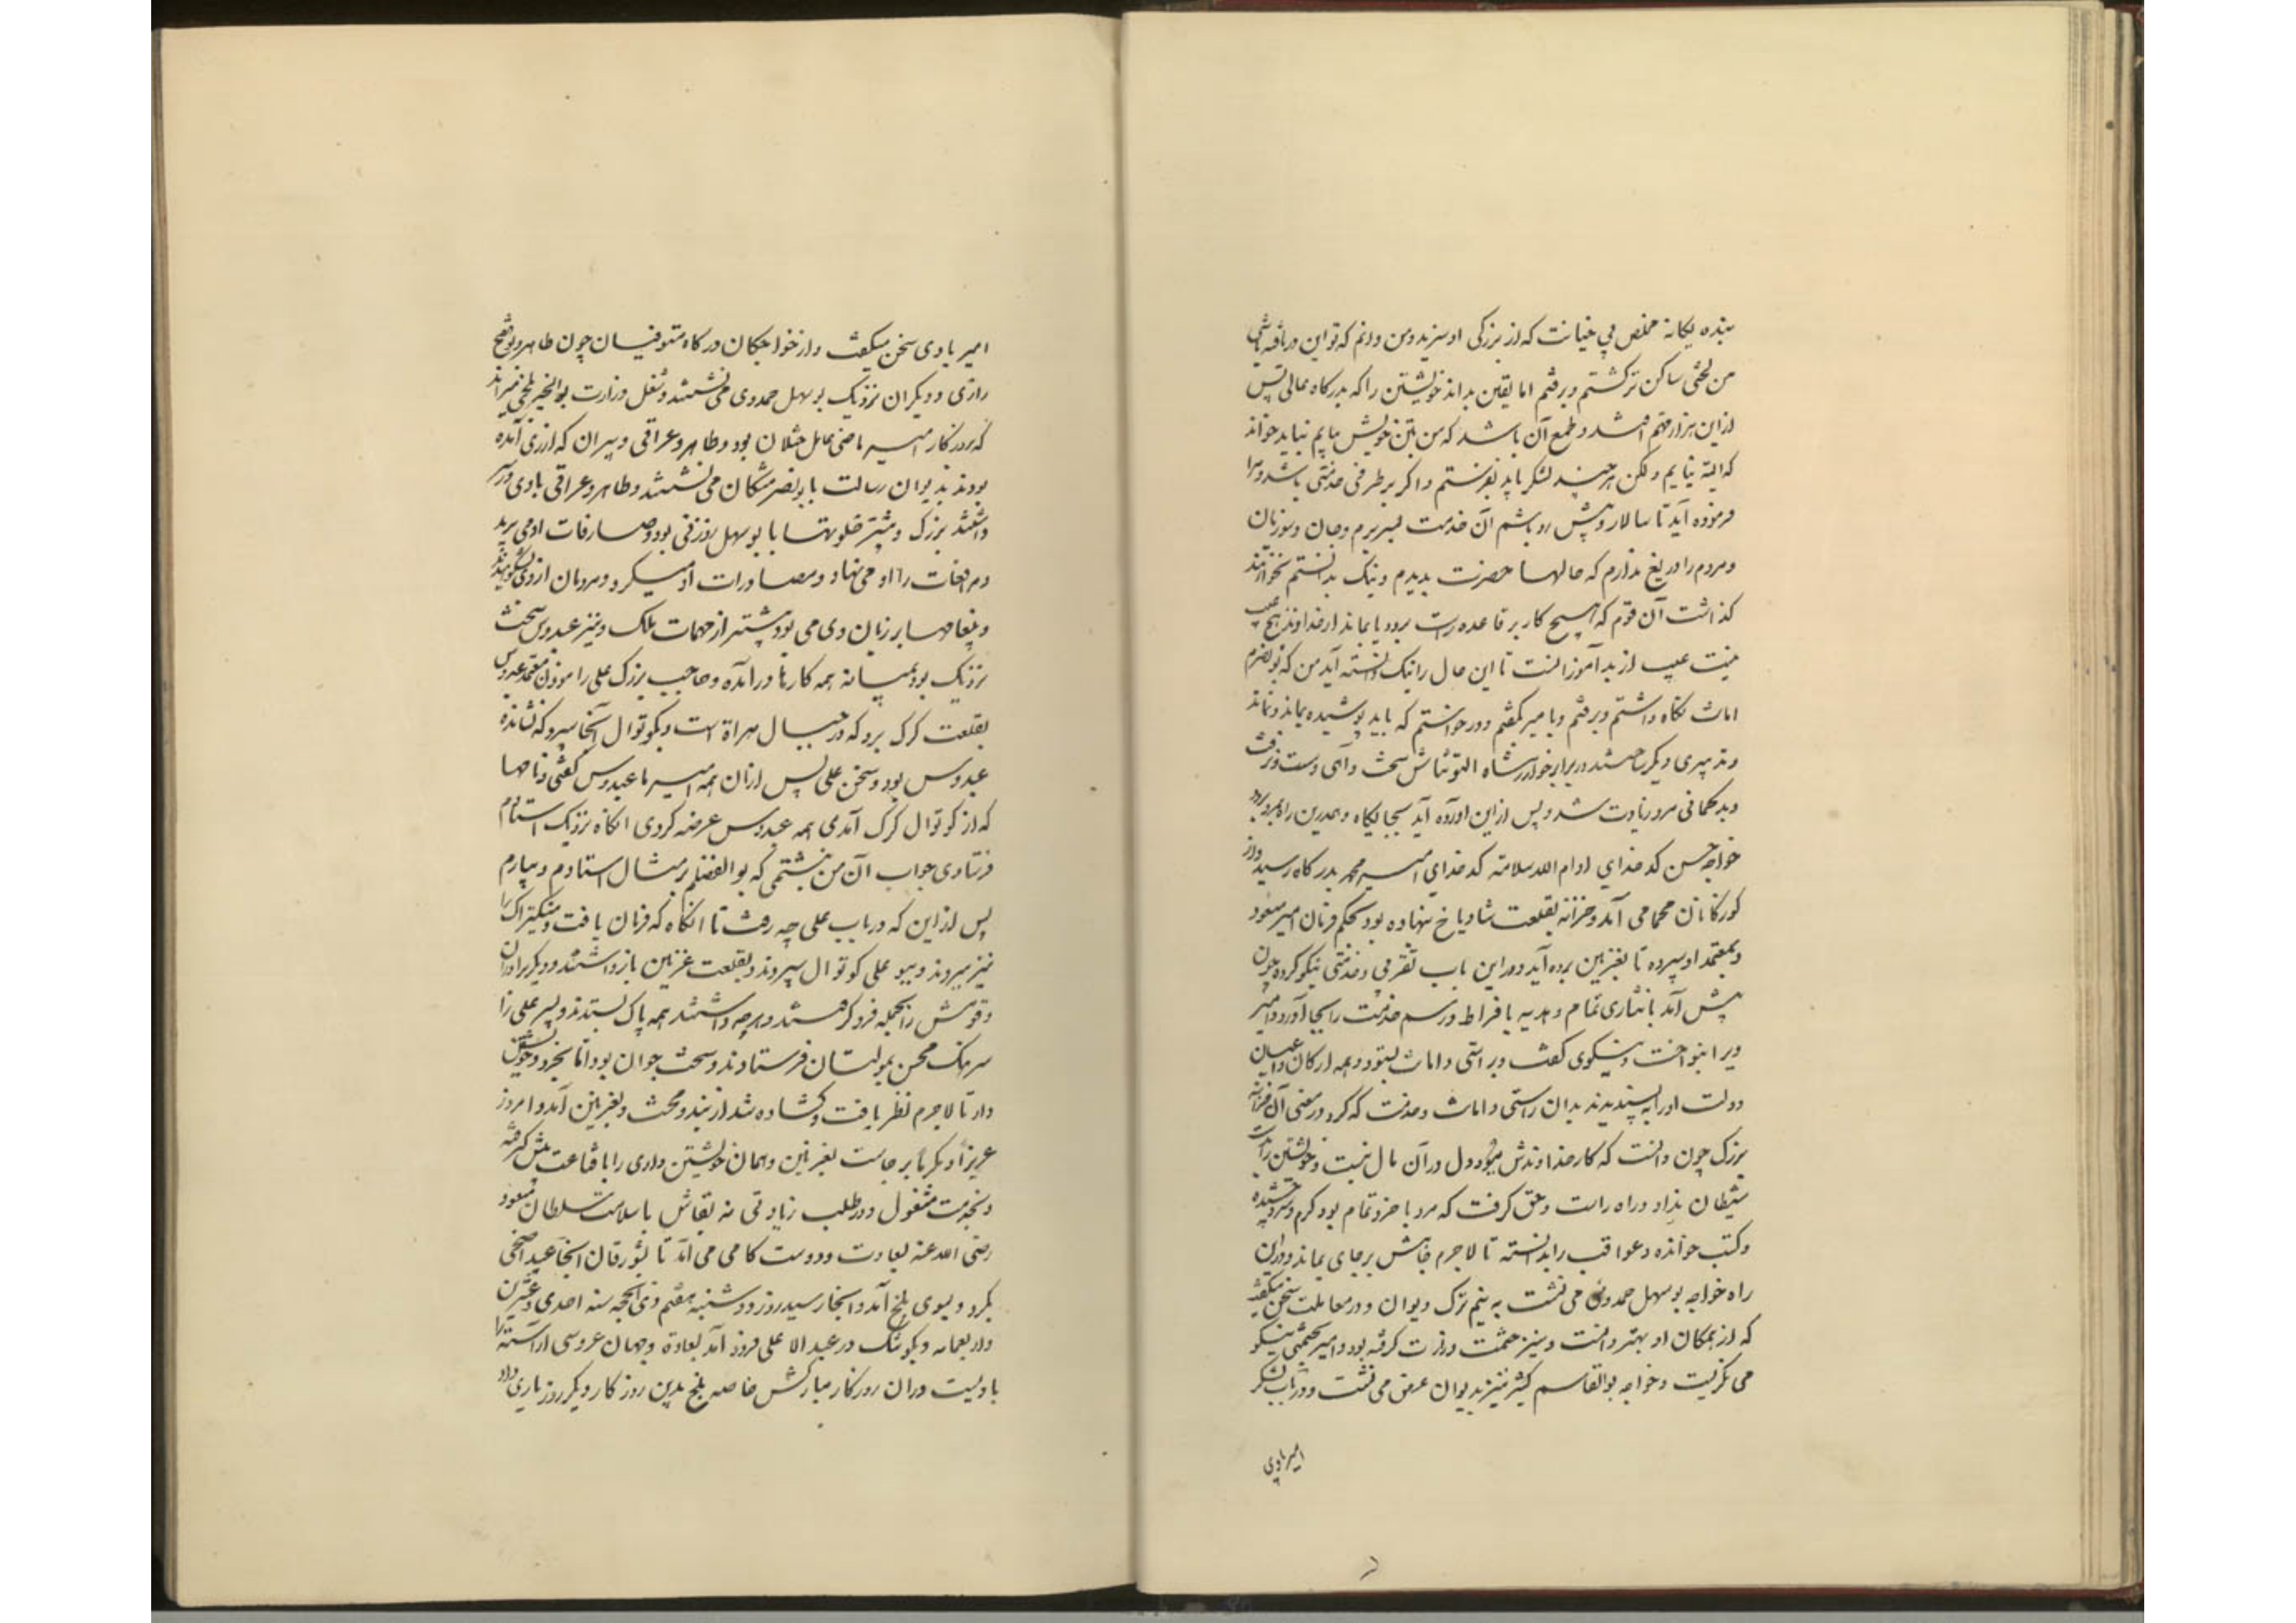 بنده یکانه مخلص بی خیانت که از بزرکی او سزید و من دانم که تو این دریافته باشی
من لختی ساکن تر کشتم و برفتم اما یقین بداند خویشتن را که بدرکاه عالی پس
ازین هزار فتم افتد و طمع آن باشد که من بتن خویش بیایم نباید خواند
که البته نیایم ولکن هر چند لشکر باید بفرستم و اکر بر طرفی خدمتی باشد و مرا
فرموده آید تا سالار و پیش رو باشم آن خدمت بسر برم و جان و سوزیان
و مردم را دریغ ندارم که حالها حضرت بدیدم و نیک بدانستم نخواهند
کذاشت آن قوم که هیچ کار بر قاعده راست برود یا بماند از خداوند هیچ عیب
نیست عیب از بدآموزانست تا این حال را نیک دانسته آید من که بونصرم
امانت نکاه داشتم و برفتم و با میر کفتم و درخواستم که باید پوشیده بماند و نماند
و تدبیری دیکر ساختند در برابر خوارزمشاه التونتاش سخت واهی و دست و نرفت
و بدکمانی مرد زیادت شد و پس ازین آورده آید بجایکاه و همدرین راه برود
خواجه حسن کدخدای ادام الله سلامته کدخدای امیر محمد بدرکاه رسید و از
کوزکانان بحمامی آمد و خزانه بقلعت شادیاخ نهاده بود بحکم فرمان امیر مسعود
و بمعتمد او سپرده تا بغزنین برده آید و در این باب تقربی و خدمتی نیکو کرده چون
پیش آمد با نثاری تمام و هدیه بافراط و رسم خدمت را بجا آورد و امیر
ویرا بنواخت و نیکوی کفت و براستی و امانت بستود و همه ارکان و اعیان
دولت او را به پسندیدند بدان راستی و امانت و خدمت که کرد در معنی آن خزانه
بزرک چون دانست که کار خداوندش ببود دل در آن مال نبست و خویشتن را بدست
شیطان نداد و راه راست و حق کرفت که مرد با خرد تمام بود کرم و سرد چشیده
و کتب خوانده و عواقب را بدانسته تا لاجرم جاهش بر جای بماند و در این
راه خواجه بوسهل حمدوی می نشست به نیم ترک دیوان و در معاملت سخن میکفت
که از همکان او بهتر دانست و نیز حشمت وزارت کرفته بود و امیر بچشمی نیکو
می نکریست و خواجه بوالقاسم کثیر نیز بدیوان عرض می نشست و در باب لشکر
امیر با وی
امیر با وی سخن میکفت و از خواجکان درکاه مستوفیان چون طاهر و بوالفتح
رازی و دیکران نزدیک بوسهل حمدوی می نشستند و شغل وزارت بوالخیر بلخی میراند
که بروزکار امیر ماضی عامل ختلان بود و طاهر و عراقی دبیران که از ری آمده
بودند بدیوان رسالت با بونصر مشکان می نشستند و طاهر و عراقی بادی در سر
داشتند بزرک و بیشتر خلوتها با بوسهل زوزنی بود و صارفات او می برید
و مرافعات را او می نهاد و مصادرات او میکرد و مردمان از وی بشکوهیدند
و پیغامها بر زبان وی می بود بیشتر از مهمات ملک و نیز عبدوس سخت
نزدیک بود بمیانه همه کارها درآمده و حاجب بزرک علی را موذن معتمد عبدوس
بقلعت کرک برد که در جبال هراة است و بکوتوال آنجا سپرد که نشانده
عبدوس بود و سخن علی پس از آن همه امیر با عبدوس کفتی و نامها
که از کوتوال کرک آمدی همه عبدوس عرضه کردی آنکاه نزدیک استادم
فرستادی جواب آن من نبشتمی که بوالفضلم بر مثال استادم و بیارم
پس از این که در باب علی چه رفت تا آنکاه که فرمان یافت و منکیتراک را
نیز ببردند و ببوعلی کوتوال سپردند و بقلعت غزنین بازداشتند و دیکر برادران
و قومش را بجمله فرو کرفتند و هر چه داشتند همه پاک بستدند و پسر علی را
سرهنک محسن بمولتان فرستادند و سخت جوان بود اما بخرد و خویشتن
دار تا لاجرم نظر یافت و کشاده شد از بند و محنت و بغزنین آمد و امروز
عزیزاً و مکرماً بر جاست بغزنین و همان خویشتن داری را با قناعت پیش کرفته
و بخدمت مشغول و در طلب زیادتی نه بقاش با سلامت سلطان مسعود
رضی الله عنه بسعادت و دوست کامی می آمد تا بشورقان آنجا عید اضحی
بکرد و بسوی بلخ آمد و آنجا رسید روز دوشنبه هفتم ذی الحجه سنه احدی و عشرین
واربعمایه و بکوشک در عبد الاعلی فرود آمد بسعادة و جهان عروسی آراسته را
مانست در آن روزکار مبارکش خاصه بلخ بدین روزکار و دیکر روز باری داد